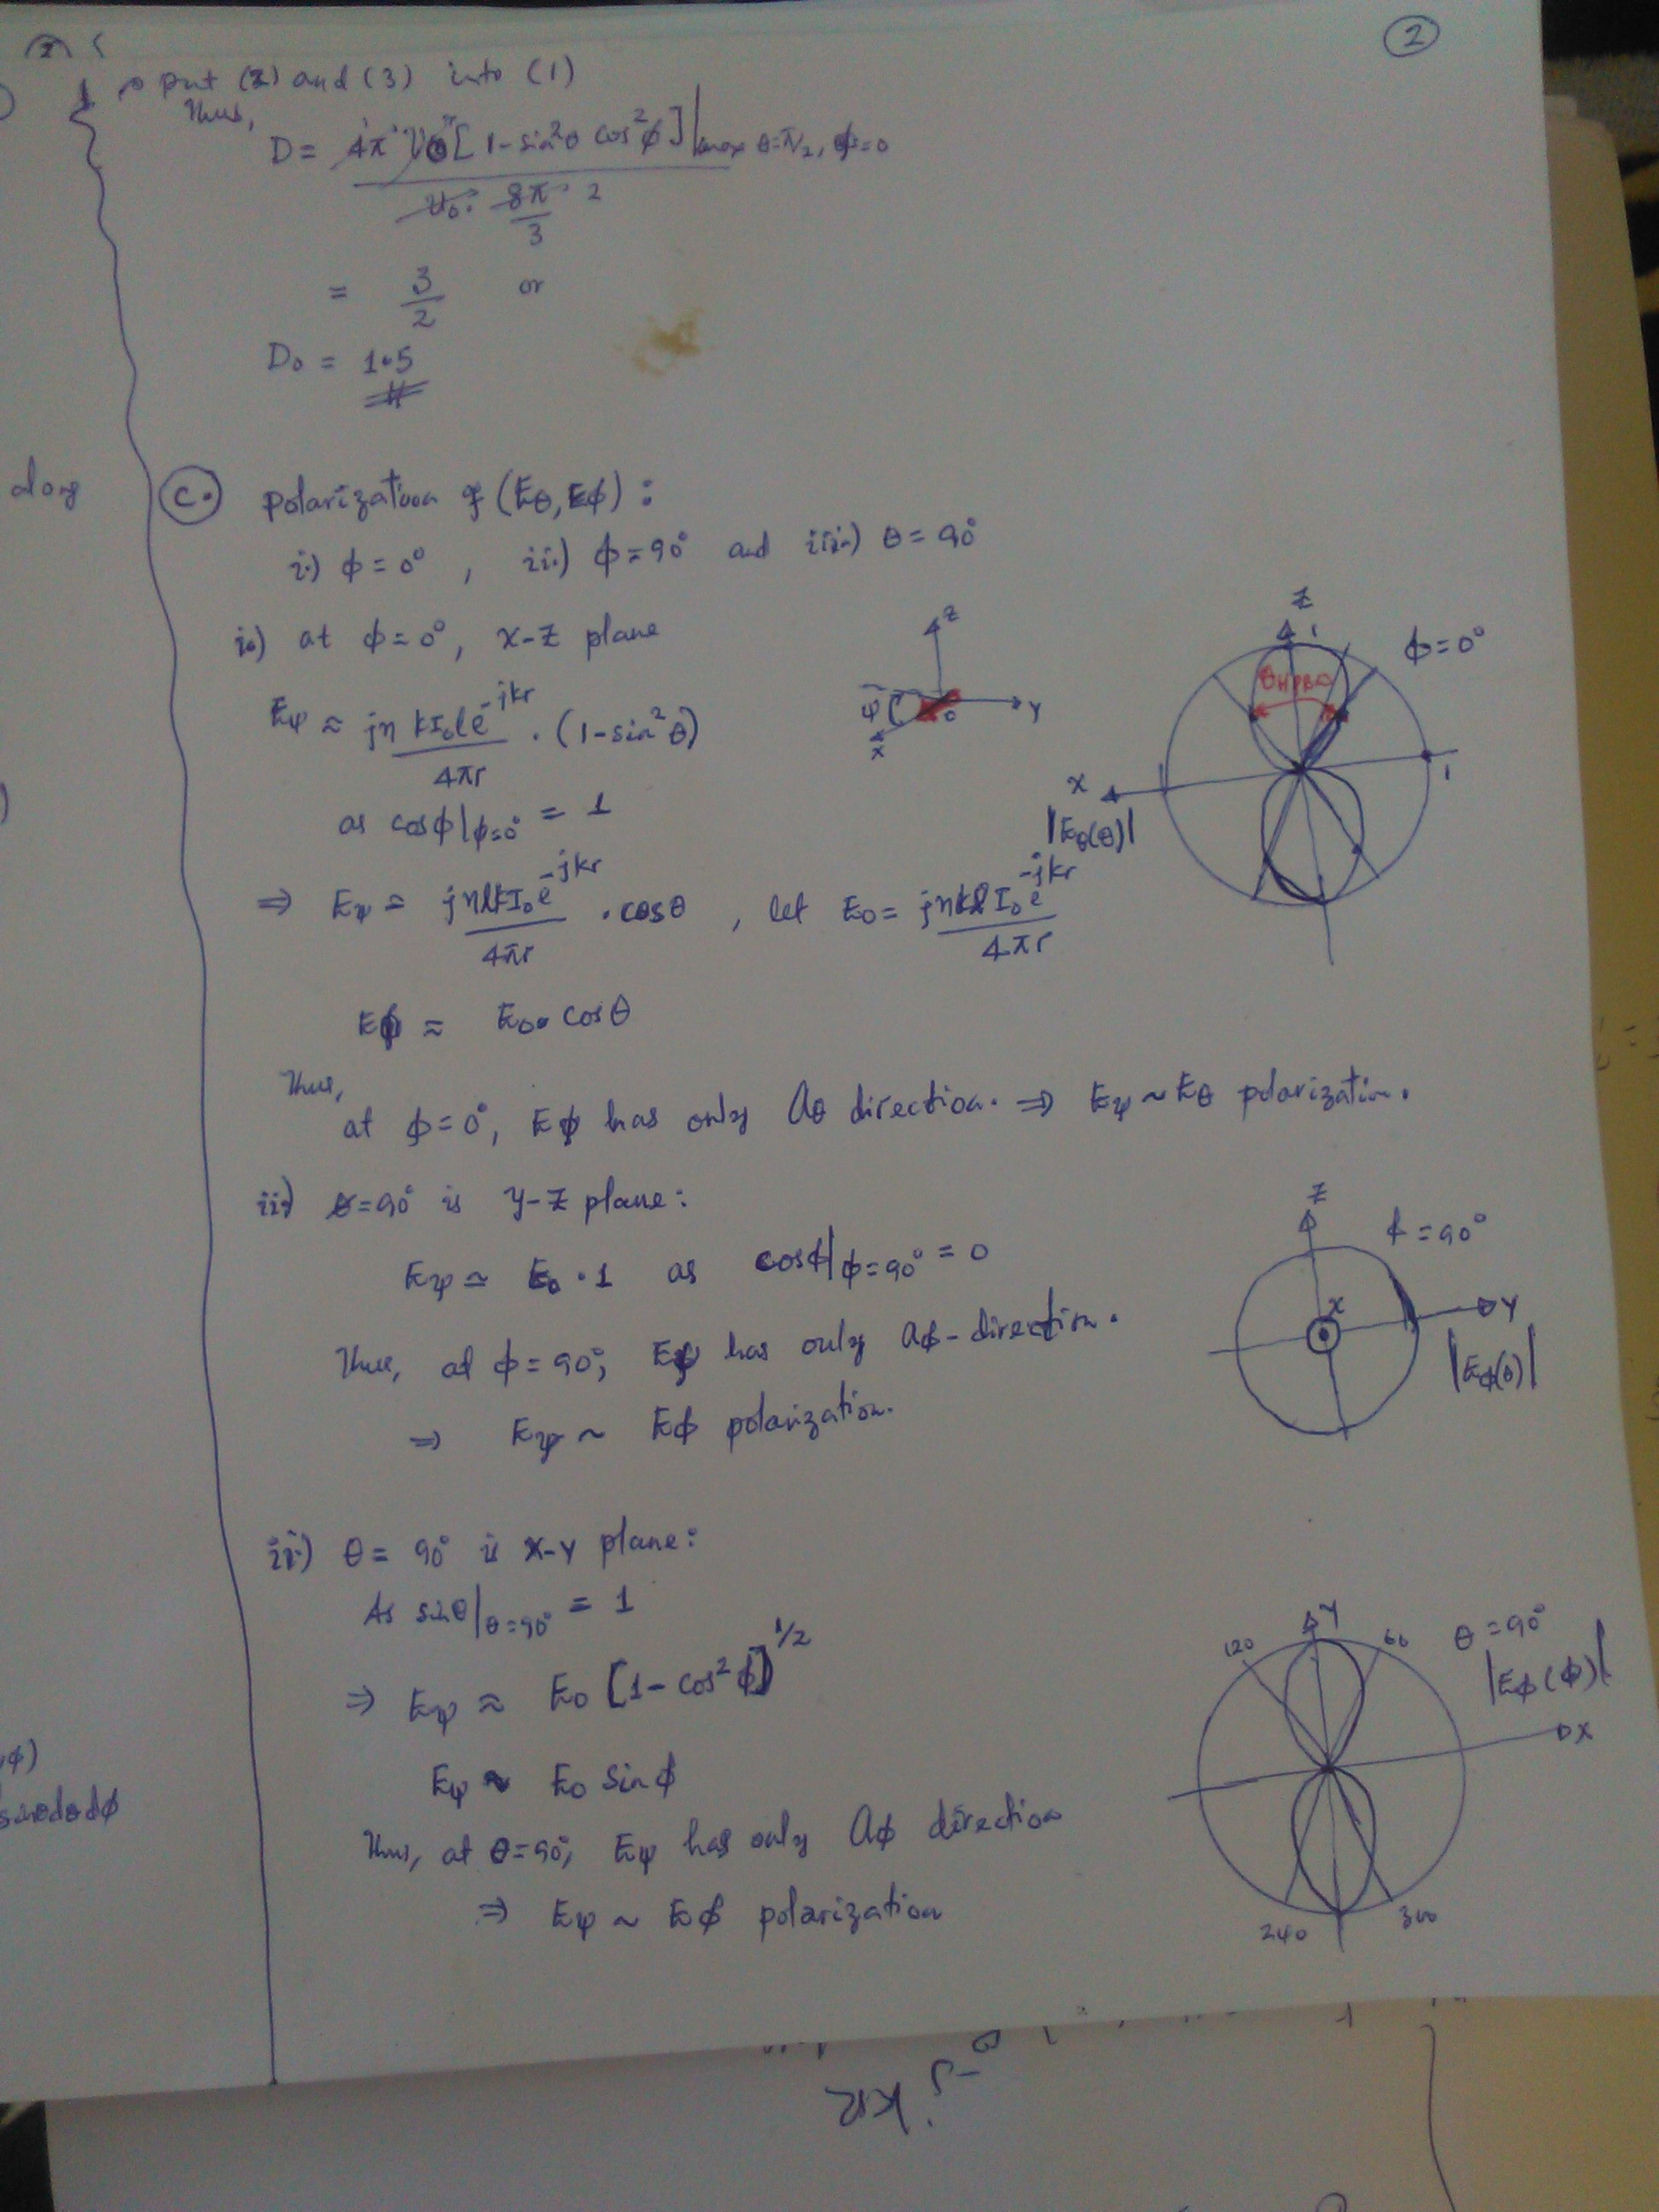 2
→ put (2) and (3) into (1)
Thus,
D = 4π U0 [1-sin²θ cos²φ]|max θ=π/2, φ=0
U0. 8π 2
3
= 3/2 or
D0 = 1.5
along
C. Polarization of (Eθ, Eφ):
i.) φ=0°, ii.) φ=90° and iii.) θ=90°
i.) at φ=0°, X-Z plane
Z
Y
X
ψ
0
Z
1
φ=0°
θHPBW
1
X
|Eθ(θ)|
Eψ ≈ jη kI0le^-jkr / 4πr . (1-sin²θ)
as cosφ|φ=0° = 1
⇒ Eψ ≈ jηlkI0e^-jkr / 4πr . cosθ, let E0 = jηklI0e^-jkr / 4πr
Eψ ≈ E0. cosθ
Thus,
at φ=0°, Eψ has only aθ direction. ⇒ Eψ ~ Eθ polarization.
ii) φ=90° is Y-Z plane:
Eψ ≃ E0 . 1 as cosφ|φ=90° = 0
Thus, at φ=90°, Eψ has only aφ-direction.
⇒ Eψ ~ Eφ polarization.
Z
φ=90°
X
Y
|Eφ(θ)|
ii) θ= 90° is X-Y plane:
As sinθ|θ=90° = 1
⇒ Eψ ≈ E0 [1-cos²φ]^1/2
Eψ ≈ E0 sinφ
Thus, at θ=90°, Eψ has only aφ direction
⇒ Eψ ~ Eφ polarization
Y
120
60
θ=90°
|Eφ(φ)|
X
240
300
,φ)
sinθdθdφ